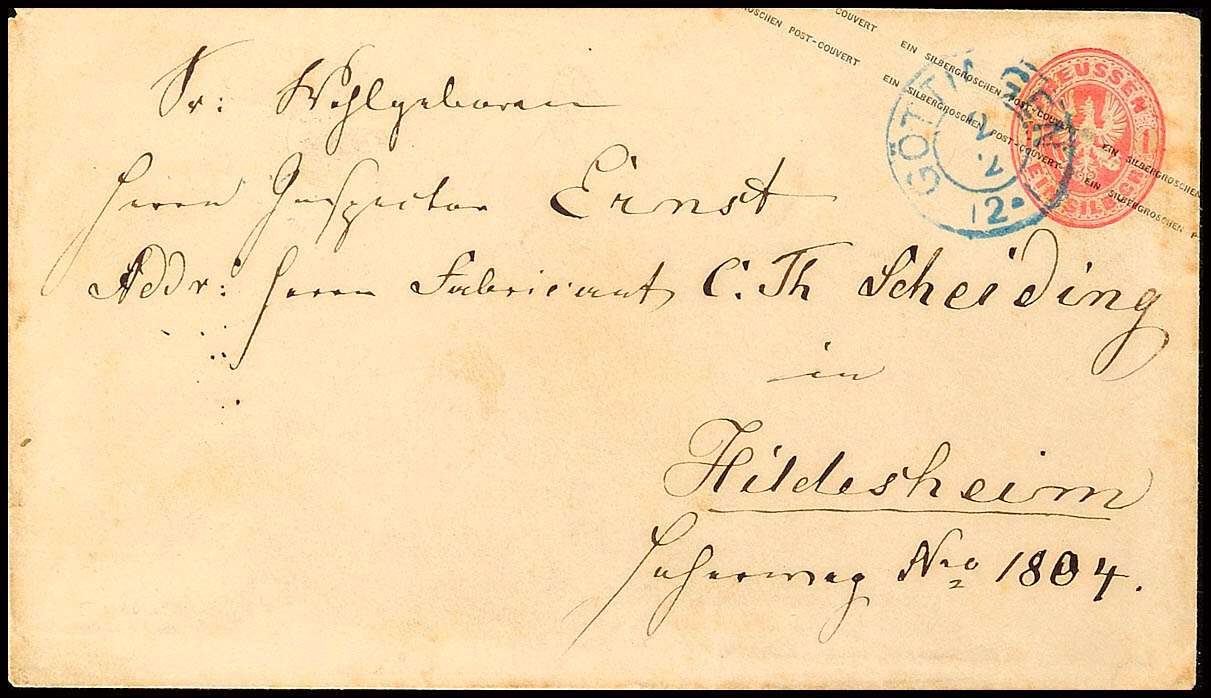 EIN SILBERGROSCHEN POST-COUVERT EIN SILBERGROSCHEN POST-COUVERT EIN SILBERGROSCHEN
EIN SILBERGROSCHEN POST-COUVERT EIN SILBERGROSCHEN
GROSCHEN POST-COUVERT
COUVERT
PREUSSEN
1
EIN SILBERGR.
GÖTTINGEN
2
2
12
Sr: Wohlgeboren
Herrn Inspector Ernst
Addr: Herrn Fabricant C. Th Scheiding
in
Hildesheim
Nro 1804.